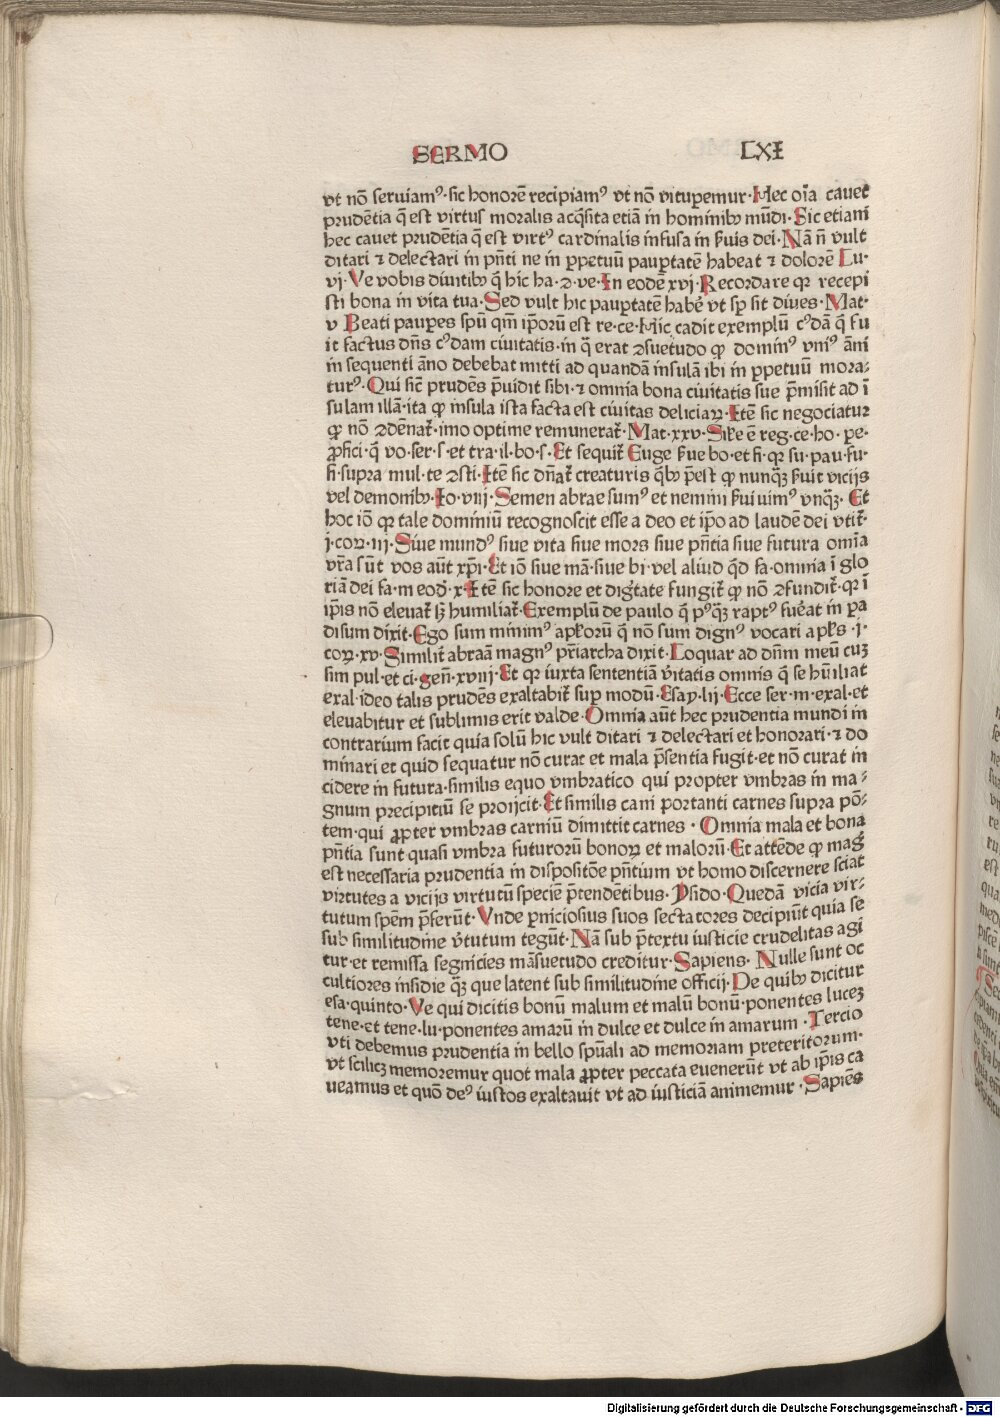 SERMO LXI
vt nō seruiamꝰ·sic honorē recipiamꝰ vt nō vituꝑemur·Hec oīa cauet
prudētia q̄ est virtus moralis acq̇sita etiā in hominibꝫ mūdi·Sic etiam
hec cauet prudētia q̄ est virtꝰ cardinalis infusa in ẜuis dei·Nā n̄ vult
ditari ⁊ delectari in pn̄ti ne in ꝑpetuū pauꝑtatē habeat ⁊ dolorē Lu·
vj·Ve vobis diuitibꝫ q̄ hic ha·ꝯ·ve·In eodē xvj·Recordare qꝛ recepi
sti bona in vita tua·Sed vult hic pauꝑtatē habē vt sꝑ sit diues·Mat·
v Beati pauꝑes spū qm̄ ip̄oꝝ est re·ce·Hic cadit exemplū cꝰdā q̄ fu
it factus dn̄s cꝰdam ciuitatis·in q̄ erat ꝯsuetudo ꝙ dominꝰ vniꝰ āni
in sequenti āno debebat mitti ad quandā insulā ibi in ꝑpetuū mora⸗
turꝰ·Qui sic̄ prudēs p̄uidit sibi·⁊ omnia bona ciuitatis sue p̄misit ad ī
sulam illā·ita ꝙ insula ista facta est ciuitas deliciaꝝ·Itē sic negociatur
ꝙ nō ꝯdēnat̄·imo optime remunerat̄·Mat·xxv·Sil̄e ē reg·ce·ho·pe·
ꝓfici·q̄ vo·ser·s·et tra·il·bo·s·Et sequit̄ Euge ẜue bo·et fi·qꝛ su·pau·fu·
fi·supra mul·te ꝯsti·Itē sic dn̄at̄ creaturis q̇bꝫ p̄est ꝙ nunqꝫ ẜuit vicijs
vel demonibꝫ·Io·viij·Semen abrae sumꝰ et nemini ẜuiuimꝰ vnqꝫ· Et
hoc iō qꝛ tale dominiū recognoscit esse a deo et ip̄o ad laudē dei vtit̄·
j·coꝝ·iij·Siue mundꝰ siue vita siue mors siue pn̄tia siue futura omīa
vr̄a sūt vos aūt xp̄i·Et iō siue mā·siue bi·vel aliud q̇d fa·omnia ī glo
riā dei fa·m eod̄·x·Itē sic honore et diḡtate fungit̄ ꝙ nō ꝯfundit̄·qꝛ ī
ip̄is nō eleuat̄ sꝫ humiliat̄·Exemplū de paulo q̄ pꝰqꝫ raptꝰ fuẽat in pa
disum dixit·Ego sum minimꝰ apl̄oꝝ q̄ nō sum dignꝰ vocari apl̄s·j·
coꝝ·xv·Similit̄ abraā magnꝰ pr̄iarcha dixit·Loquar ad dn̄m meū cuꝫ
sim pul·et ci·gen̄·xviij·Et qꝛ iuxta sententiā v̄itatis omnis q̄ se hūiliat
exal·ideo talis prudēs exaltabit̄ suꝑ modū·Esay·lij·Ecce ser·m·exal·et
eleuabitur et sublimis erit valde·Omnia aūt hec prudentia mundi in
contrarium facit quia solū hic vult ditari ⁊ delectari et honorari·⁊ do
minari et quid sequatur nō curat et mala p̄sentia fugit·et nō curat in
cidere in futura·similis equo vmbratico qui propter vmbras in ma⸗
gnum precipitiū se proijcit·Et similis cani portanti carnes supra pō⸗
tem·qui ꝓpter vmbras carniū dimittit carnes · Omnia mala et bona
pn̄tia sunt quasi vmbra futurorū bonoꝝ et malorū·Et attēde ꝙ maḡ
est necessaria prudentia in dispositōe pn̄tium vt homo discernere sciat
virtutes a vicijs virtutū speciē p̄tendētibus·Ysido·Quedā vicia vir⸗
tutum spēm p̄ferūt·Vnde ꝑniciosius suos sectatores decipiūt quia se
sub similitudīe v̄tutum tegūt·Nā sub p̄textu iusticie crudelitas agi
tur·et remissa segnicies māsuetudo creditur·Sapiens· Nulle sunt oc
cultiores insidie qꝫ que latent sub similitudīe officij·De quibꝫ dicitur
esa·quinto·Ve qui dicitis bonū malum et malū bonū·ponentes luceꝫ
tene·et tene·lu·ponentes amarū in dulce et dulce in amarum ·Tercio
vti debemus prudentia in bello spūali ad memoriam preteritorum·
vt scilicꝫ memoremur quot mala ꝓpter peccata euenerūt vt ab ip̄is ca
ueamus et quō deꝰ iustos exaltauit vt ad iusticiā animemur·Sapiēs
Digitalisierung gefördert durch die Deutsche Forschungsgemeinschaft - DFG